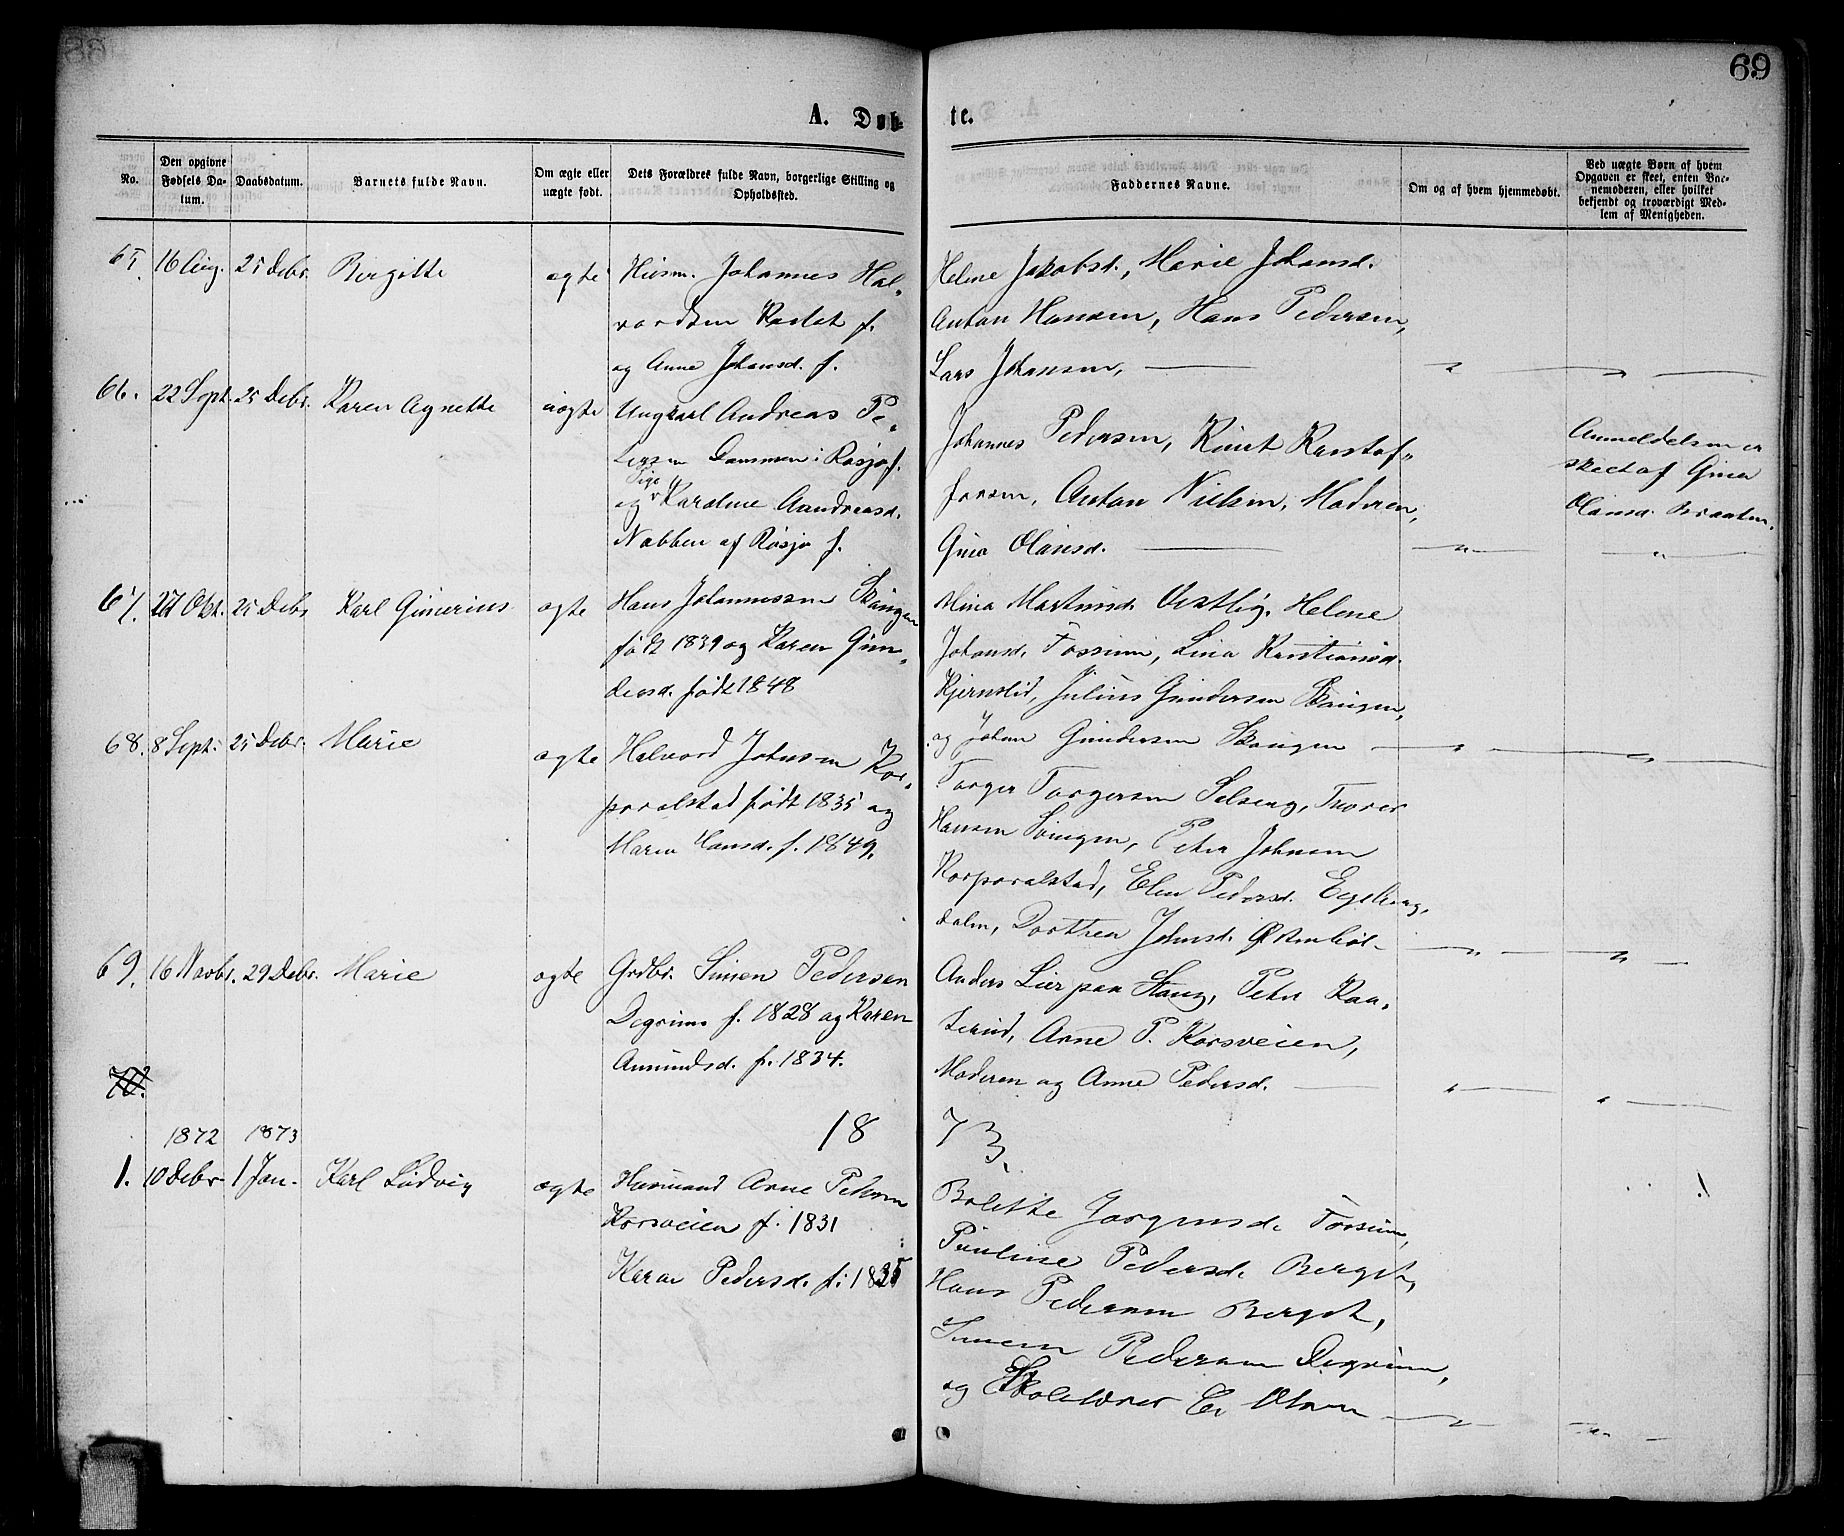 69
A. Døb-
te.
No.
Den opgivne Fødsels Da-tum.
Daabsdatum.
Barnets fulde Navn.
Om ægte eller uægte født.
Dets Forældres fulde Navn, borgerlige Stilling og Opholdssted.
Faddernes Navne.
Om og af hvem hjemmedøbt.
Ved uægte Børn af hvem Opgaven er skeet, enten Bar-nemoderen, eller hvilket bekjendt og troværdigt Med-lem af Menigheden.
65. 16 Aug. 25 Debr. Birgitte ægte Husm. Johannes Hal-
vordsen f.
og Anne Johansd. f.
Helene Jakobsd., Marie Johansd.
Anton Hansen, Hans Pedersen,
Lars Johansen, — " — " —
66. 22 Sept. 25 Debr. Karen Agnette uægte Ungkarl Andreas Pe-
dersen i Røsjø f.
og Pige Karoline Aandreasd.
Nabben af Røsjø f.
Johannes Pedersen, Knut Kristof-
fersen, Anton Nielsen, Moderen,
Gina Olansd. — " — " —
Anmeldelsen er
skeet af Gina
Olansd. Braaten.
67. 27 Okt. 25 Debr. Karl Gunerius ægte Hans Johannessen Skougen
født 1839 og Karen Gun-
dersd. født 1848
Mina Martinsd. Vestlig, Helene
Johansd. Fossum, Lina Kristiansd.
Kjernslid, Julius Gundersen Skougen,
og Johan Gundersen Skougen — " — " —
68. 8 Sept. 25 Debr. Marie ægte Halvord Johnsen Kor-
poralstad født 1835 og
Maren Hansd. f. 1849.
Torger Torgersen Selberg, Thorer
Hansen Skougen, Peter Johnsen
Korporalstad, Elen Pedersd. Egeberg-
dalen, Dorthea Johnsd. — " — " —
69. 16 Novbr. 29 Debr. Marie ægte Grdbr. Simen Pedersen
Degrum f. 1828 og Karen
Amundsd. f. 1834.
Anders Lier paa Haug, Peter Raa-
terud, Arne P. Korsveien,
Moderen og Anne Pedersd. — " — " —
70.
1872 1873
18
73.
1. 10 Debr. 1 Jan. Karl Ludvig ægte Husmand Arne Pedersen
Korsveien f. 1831
Karen Pedersd. f. 1835
Bolette Jørgensd. Fossum,
Pauline Pedersd. Bergst,
Hans Pedersen Bergst,
Simen Pedersen Degrum,
og Skolelærer E. Olsen — " — " —